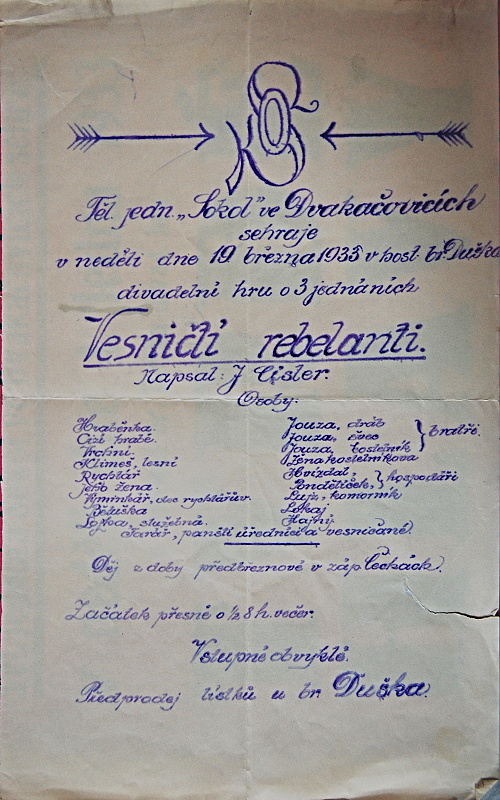 Těl. jedn. „Sokol" ve Dvakačovicích
sehraje
v neděli dne 19 března 1933 v host. br. Duška
divadelní hru o 3 jednáních
Vesničtí rebelanti.
Napsal: J Cisler.
Osoby:
Hraběnka.
Cizí
Vrchní.
Klimeš, lesní
Rychtář
jeho žena.
otec rychtářův.
Bětuška
služebná.
Jouza, dráb
Jouza, švec
Jouza, kostelník
bratři.
Žena kostelníkova
Hvízdal,
Pondělíček,
hospodáři
komorník
Lokaj
Hajný
panští úředníci a vesničané.
Děj z doby předbřeznové v záp. Čechách.
Začátek přesně o ½ 8 h. večer.
Vstupné obvyklé.
Předprodej lístků u br. Duška.